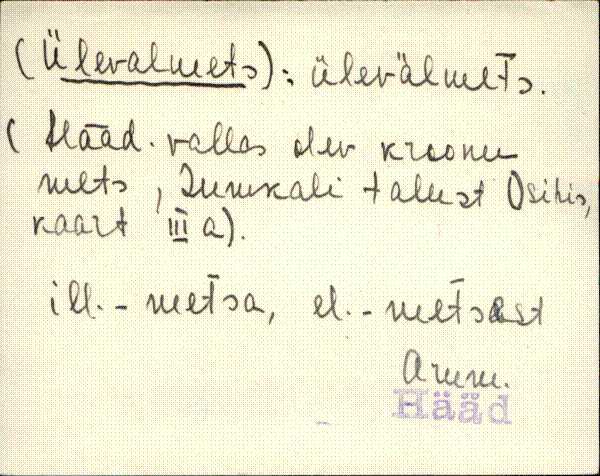 (Ülevalmets): ülevälmet̄s.
( Hääd. vallas olev kroonu
mets, talust Osihis,
kaart III a).
ill. - met̄sa, el. - met̄sast
Arum.
Hääd